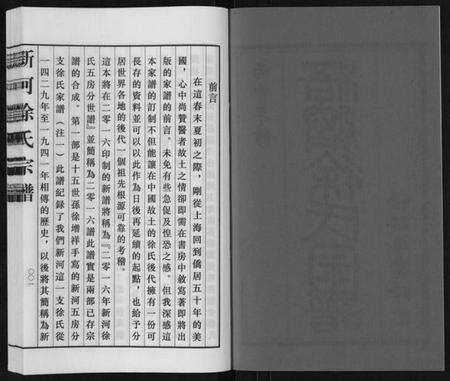 前言
在這春末夏初之際，剛從上海回到僑居五十年的美
國，心中尚贊醫者故土之情卻即需在書房中敘寫著即將出
版的家譜的前言。未免有些急促及惶恐之感。但我深感這
本家譜的訂制不但能讓在中國故土的徐氏後代擁有一份可
長存的資料並可以以此作為日後再延續的起點，也給予分
居世界各地的後代一個祖先根源可靠的考稽。
這本將在二零一六印制的新譜將稱為『二零一六年新河徐
氏五房分世譜』並簡稱為二零一六譜此譜實是兩部已存宗
譜的合成。第一部是十五世孫徐增祥手寫的新河五房分
支徐氏家譜（注一）此譜紀錄了我們新河這一支徐氏從
一四二九年至一九四一年相傳的歷史，以後將其簡稱為新
新河徐氏宗譜